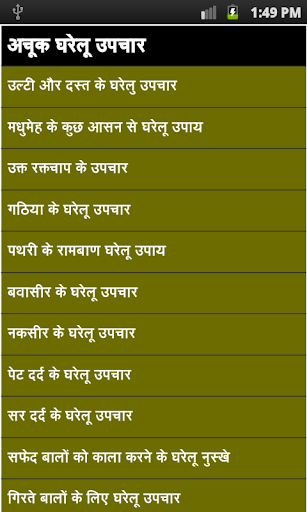 1:49 PM
अचूक घरेलू उपचार
उल्टी और दस्त के घरेलु उपचार
मधुमेह के कुछ आसन से घरेलू उपाय
उक्त रक्तचाप के उपचार
गठिया के घरेलू उपचार
पथरी के रामबाण घरेलू उपाय
बवासीर के घरेलू उपचार
नकसीर के घरेलू उपचार
पेट दर्द के घरेलू उपचार
सर दर्द के घरेलू उपचार
सफेद बालों को काला करने के घरेलू नुस्खे
गिरते बालों के लिए घरेलू उपचार